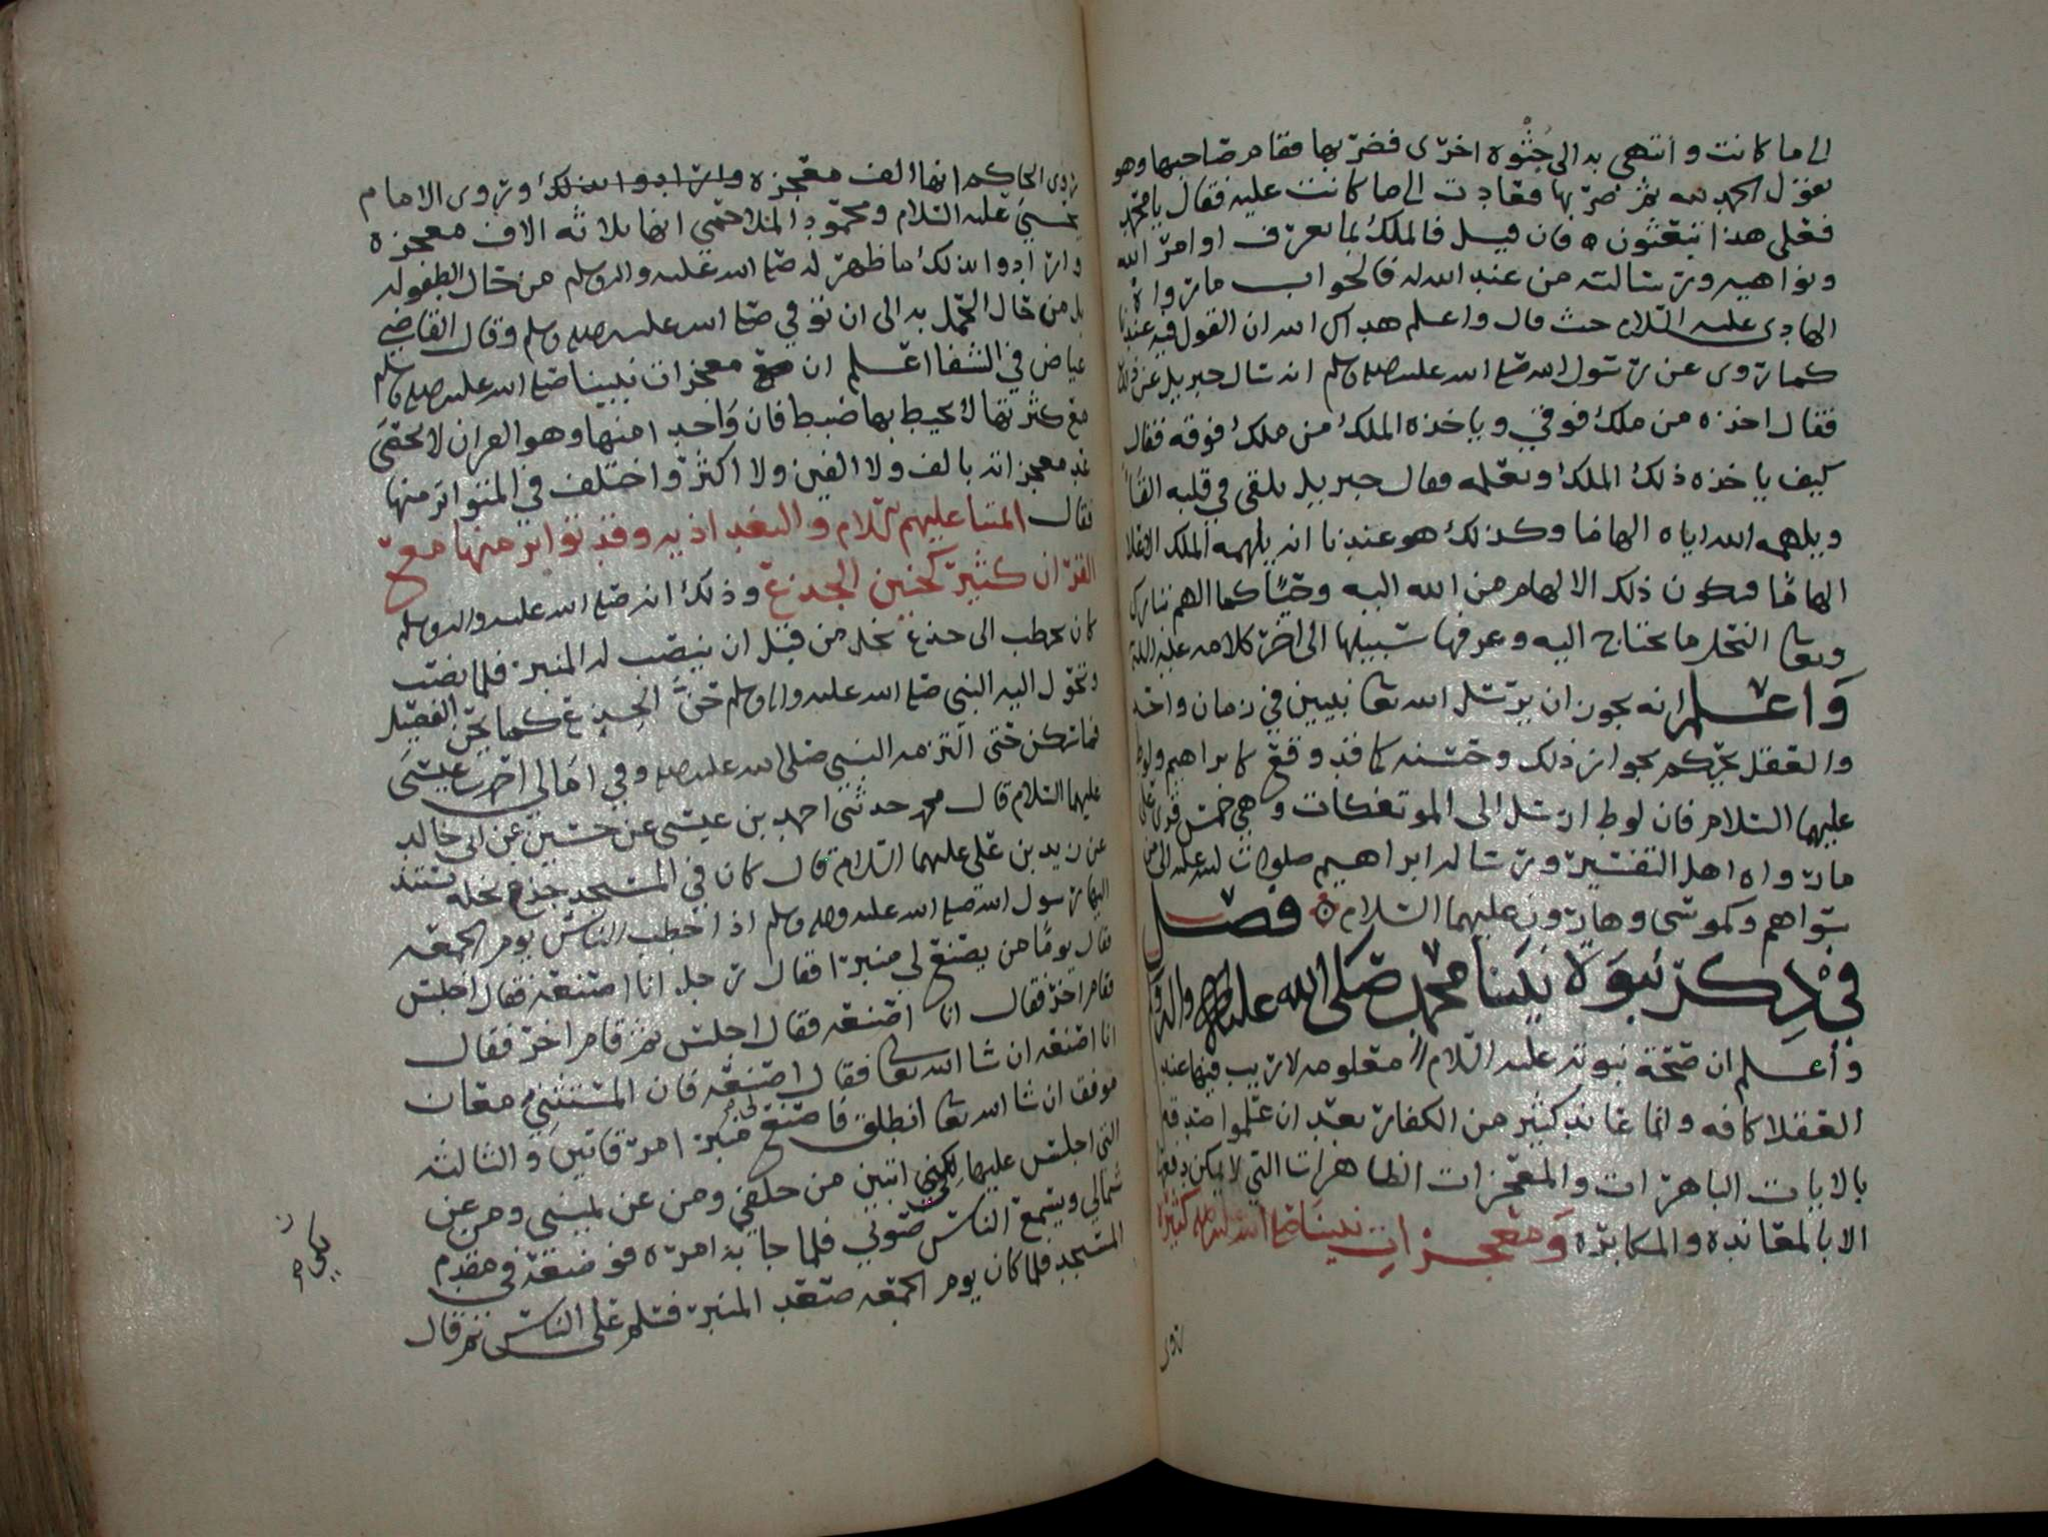 الى ما كانت وانتهى به الى جثوة اخرى فضربها فقام صاحبها وهو
يقول الحمد لله ثم ضربها فعادت الى ما كانت عليه فقال يا محمد
فعلى هذا تبعثون ه فان قيل فالملك بما يعرف اوامر الله
ونواهيه ورسالته من عند الله له فالجواب ما رواه
الهادي عليه السلام حيث قال واعلم هداك الله ان القول فيه عندنا
كما روي عن رسول الله صلى الله عليه وسلم انه سال جبريل عن ذلك
فقال اخذه من ملك فوقي وياخذه الملك من ملك فوقه فقال
كيف ياخذه ذلك الملك ويعلمه فقال جبريل يلقى في قلبه القاً
ويلهمه الله اياه الهاما وكذلك هو عندنا انه يلهمه الملك الاعلا
الهامًا فيكون ذلك الالهام من الله اليه وحيًا كما الهم تبارك
وتعالى النحل ما تحتاج اليه وعرفها سبيلها الى اخر كلامه عليه السلام
وَاعلم انه يجوز ان يرسل الله تعالى نبيين في زمان واحد
والعقل يحكم بجواز ذلك وحسنه كما قد وقع كابراهيم ولوط
عليهما السلام فان لوط ارسل الى الموتفكات وهي خمس قرى على
ما رواه اهل التفسير ورسالة ابراهيم صلوات الله عليه الى من
سواهم وكموسى وهارون عليهما السلام ه فصل
في ذكر نبوة نبينا محمد صلى الله عليه واله وسلم
وأعلم ان صحة نبوته عليه السلام معلومه لا ريب فيها عند
العقلا كافه وانما عاند كثير من الكفار بعد ان علموا صدقه
بالايات الباهرات والمعجزات الظاهرات التي لا يمكن دفعها
الا بالمعانده والمكابره وَمعجزات نبينا صلى الله عليه كثيرة
روى
روى الحاكم انها الف معجزه وارادوا بذلك وروى الامام
يحيى عليه السلام ومحمود الملاحمي انها ثلاثة الاف معجزه
وارادوا بذلك ما ظهر له صلى الله عليه واله وسلم من حال الطفوله
بل من حال الحمل به الى ان توفي صلى الله عليه وسلم وقال القاضي
عياض في الشفا اعلم ان معجزات نبينا صلى الله عليه وسلم
مع كثرتها لا يحيط بها ضبط فان واحدا منها وهو القران لا يحصى
عد معجزاته بالف ولا الفين ولا اكثر واختلف في المتواتر منها
فقال ائمتنا عليهم السلام والبغداذيه وقد تواتر منها مع
القران كثير كحنين الجذع وذلك انه صلى الله عليه واله وسلم
كان يخطب الى جذع نخله من قبل ان ينصب له المنبر فلما نصب
وتحول اليه النبي صلى الله عليه واله وسلم حنَّ الجذع كما يحن الفصيل
فما سكن حتى التزمه النبي صلى الله عليه وفي امالي احمد بن عيسى
عليهما السلام قال محمد حدثني احمد بن عيسى عن حسين عن ابي خالد
عن زيد بن علي عليهما السلام قال كان في المسجد جذع نخله يستند
اليها رسول الله صلى الله عليه وسلم اذا خطب الناس يوم الجمعه
فقال يومًا من يصنع لي منبرا فقال رجل انا اصنعه فقال اجلس
فقام اخر فقال انا اصنعه فقال اجلس ثم قام اخر فقال
انا اصنعه ان شا الله تعالى فقال اصنعه فان المستثني معان
موفق ان شا الله تعالى انطلق فاصنع لي منبر امرقاتين والثالثه
التي اجلس عليها لكي اتبين من خلفي ومن عن يميني ومن عن
شمالي ويسمع الناس صوتي فلما جا به امره فوضعه في مقدم
المسجد فلما كان يوم الجمعه صعد المنبر فسلم على الناس ثم قال